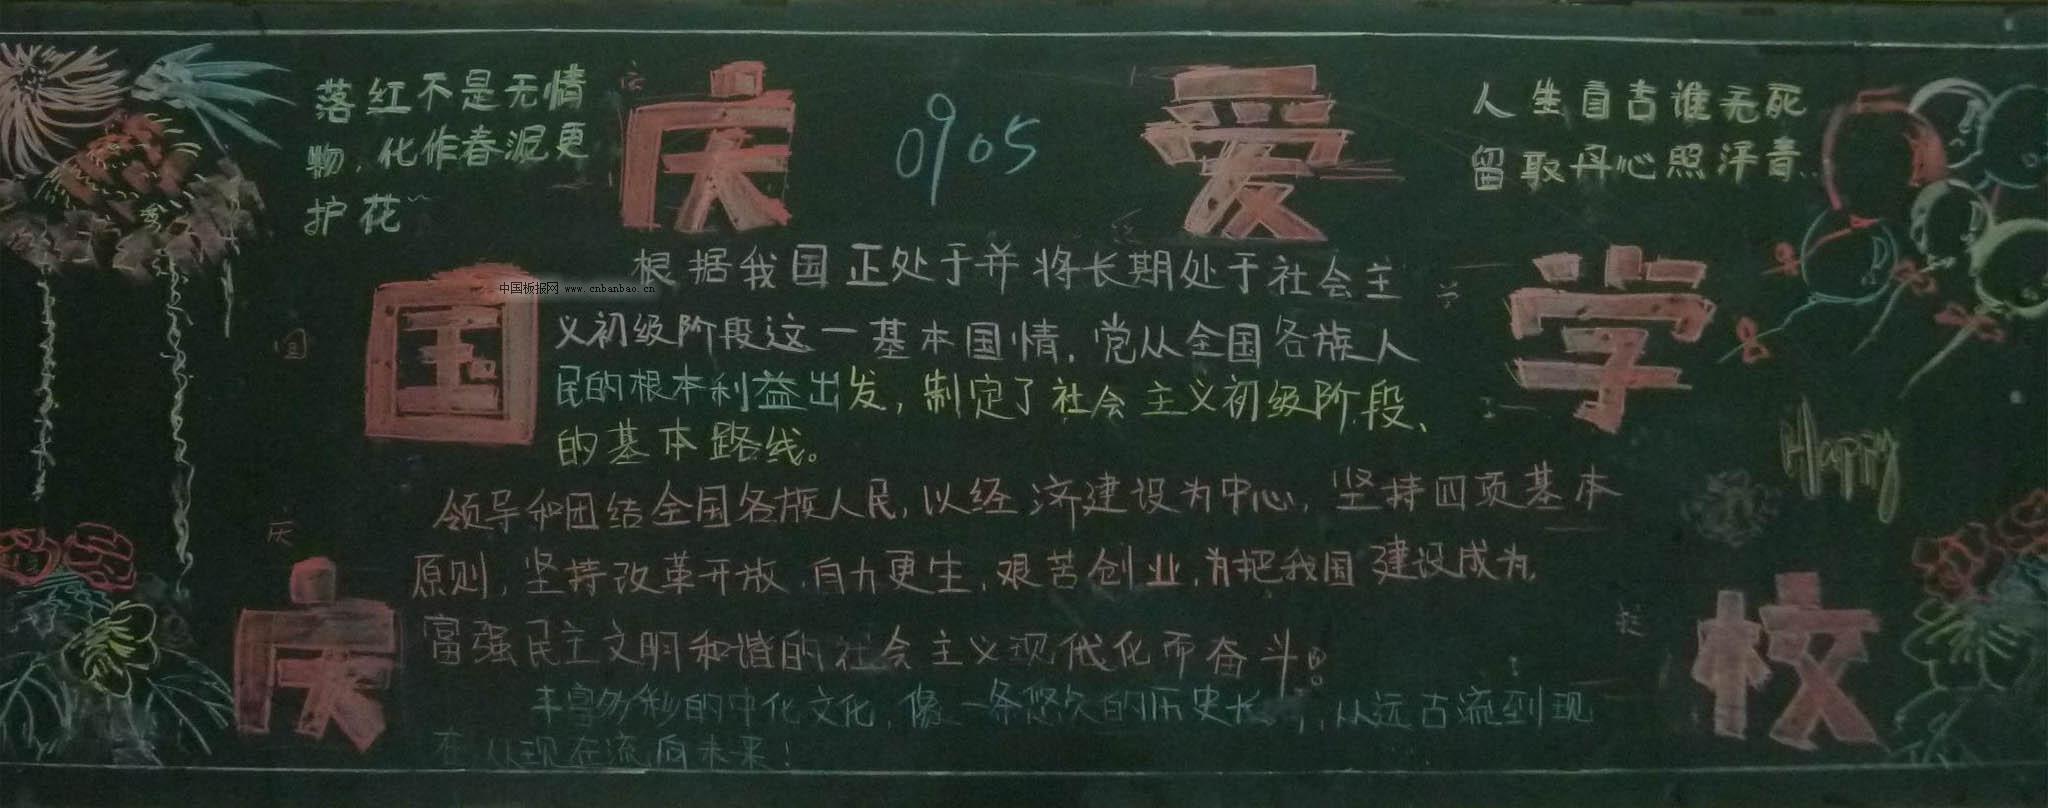 落红不是无情
物，化作春泥更
护花
庆
0905
爱
人生自古谁无死
留取丹心照汗青
国
庆
学
校
中国板报网 www.cnbanbao.cn
根据我国正处于并将长期处于社会主
义初级阶段这一基本国情，党从全国各族人
民的根本利益出发，制定了社会主义初级阶段、
的基本路线。
领导和团结全国各族人民，以经济建设为中心，坚持四项基本
原则，坚持改革开放，自力更生，艰苦创业，为把我国建设成为，
富强民主文明和谐的社会主义现代化而奋斗
丰富多彩的中化文化，像一条悠久的历史长，从远古流到现
在从现在流向未来！
Happy